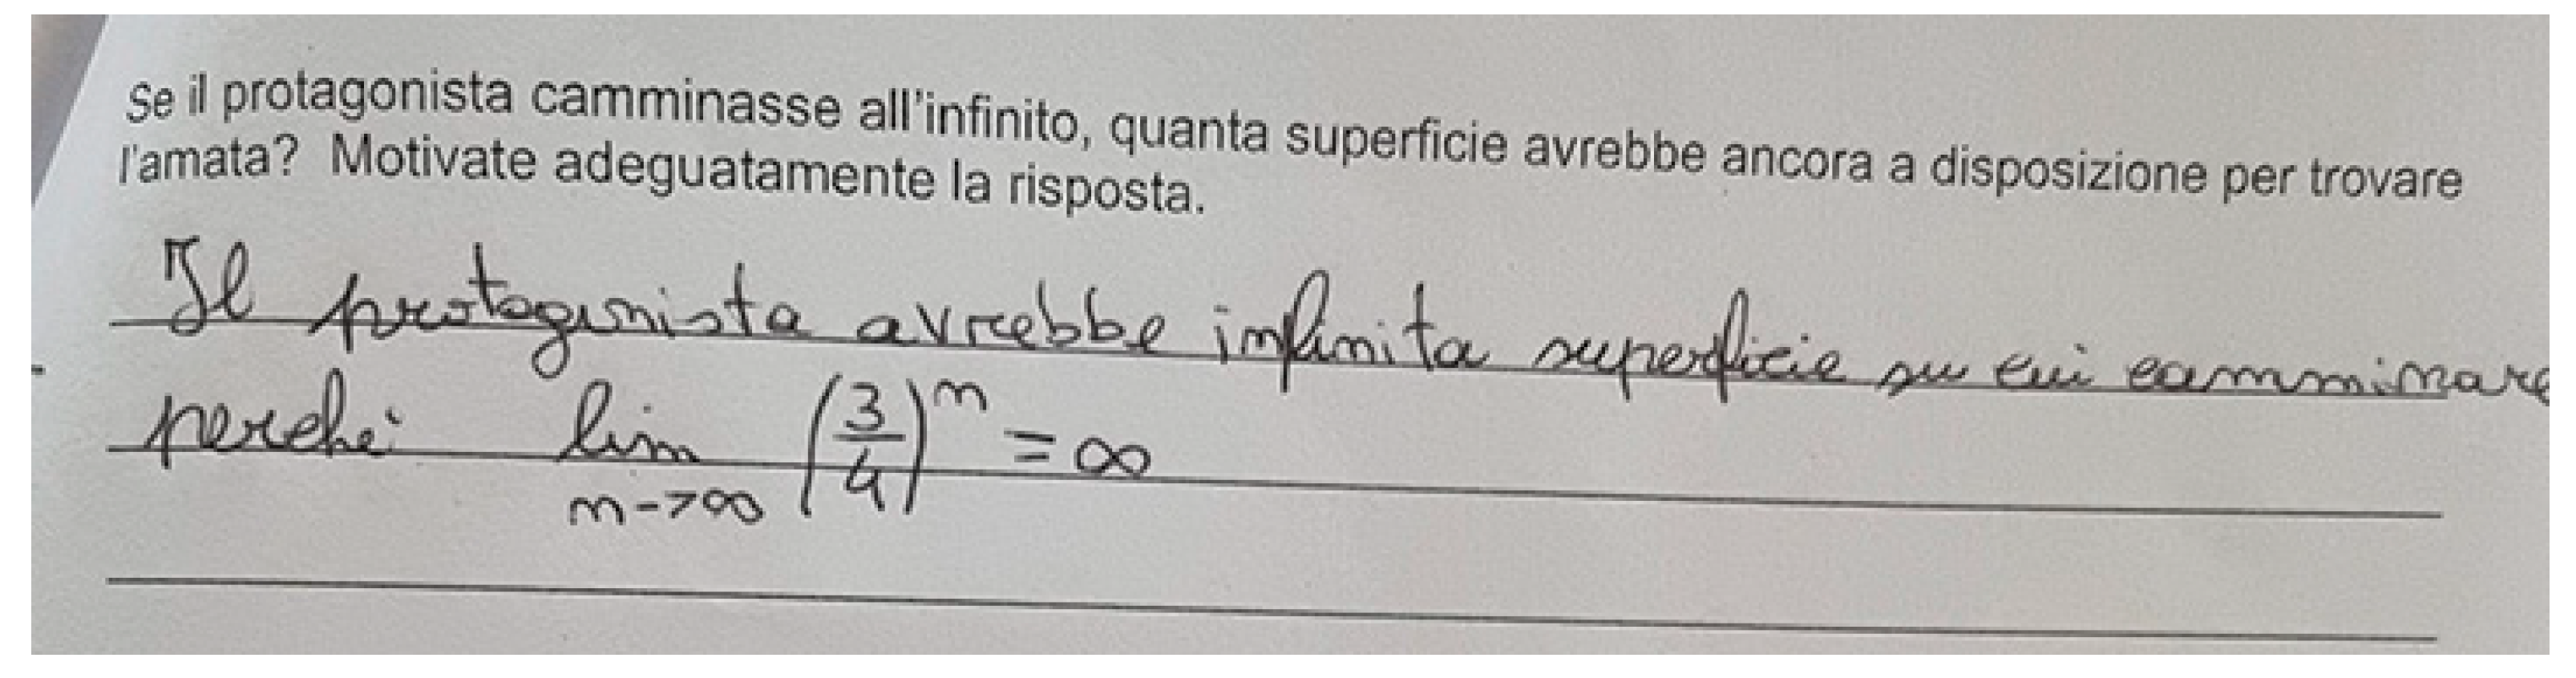 Se il protagonista camminasse all'infinito, quanta superficie avrebbe ancora a disposizione per trovare
l'amata? Motivate adeguatamente la risposta.
Il protagonista avrebbe infinita superficie su cui camminare
perché lim n->∞ (3/4)^n = ∞